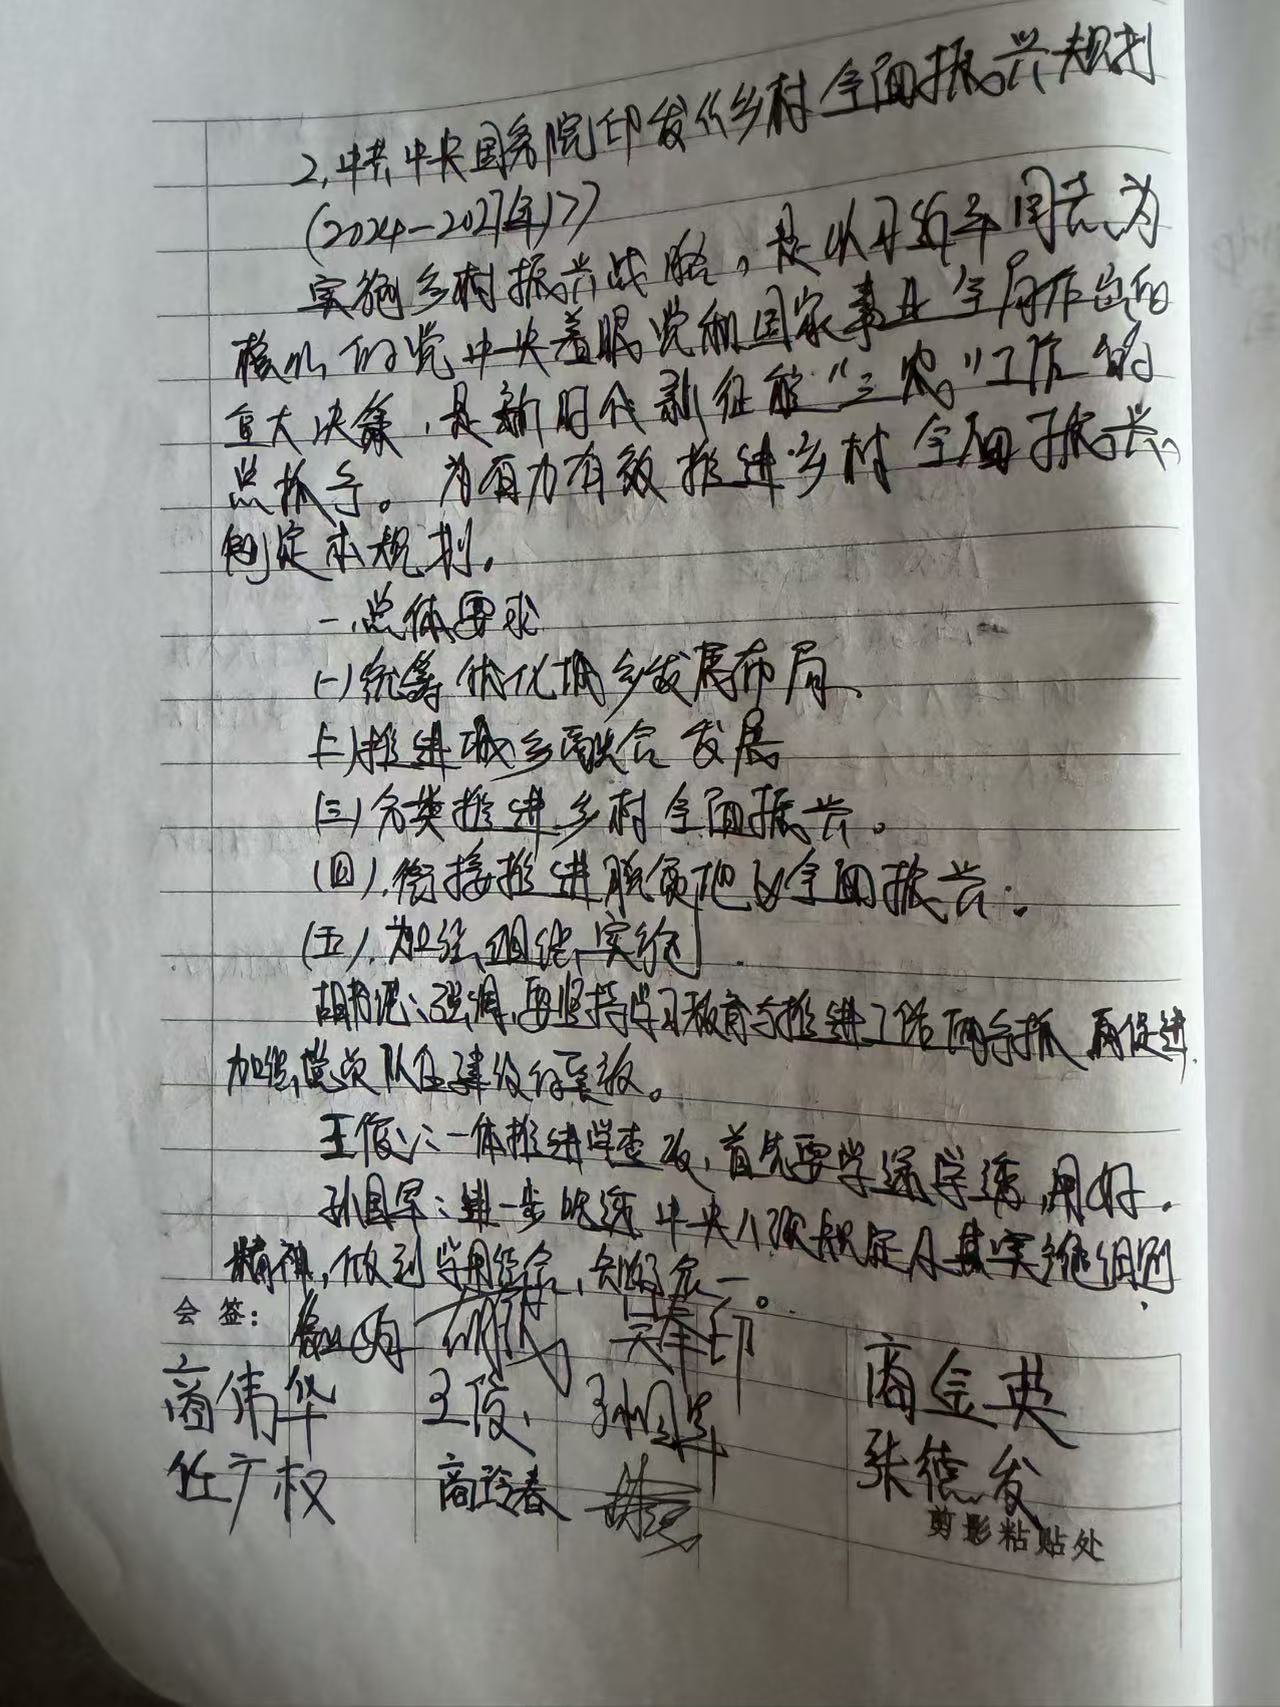 2,中共中央国务院印发《乡村全面振兴规划
(2024-2027年)》
实施乡村振兴战略,是以习近平同志为
核心的党中央着眼党和国家事业全局作出的
重大决策,是新时代新征程"三农"工作的
总抓手。为有力有效推进乡村全面振兴,
制定本规划。
一、总体要求
(一)统筹优化城乡发展布局、
(二)推进城乡融合发展
(三)分类推进乡村全面振兴。
(四).衔接推进脱贫地区全面振兴.
(五).加强组织实施.
胡书记:强调,要坚持学习教育与推进工作两手抓 两促进,
加强党员队伍建设
王俊:一体推进学查改,首先要学深学透,用好.
孙国军:进一步 中央八项规定及其实施细则
精神,做到学用结合,知行合一。
会签:
商伟华 王俊 孙国军 商金英
任广权 商玲春 张德发
剪影粘贴处